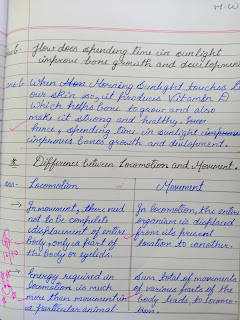 H.W
Ques 6. How does spending time in sunlight
improve bone growth and developmen
ans 6. When Morning Sunlight touches to
our skin so, it produces Vitamin D
which helps bone to grow and also
make it strong and healthy.
hence, spending time in sunlight
improves bones growth and
* Difference between Locomotion and Movement.
ans- Locomotion Movement
→ In movement, there need In locomotion, the entire
not to be complete organism is displaced
displacement of entire from its present
body, only a part of location to another.
the body or eyelids.
→ Energy required in Sum total of movements
locomotion is much of various parts of the
more than movement in body leads to locomo-
a particular animal. tion.